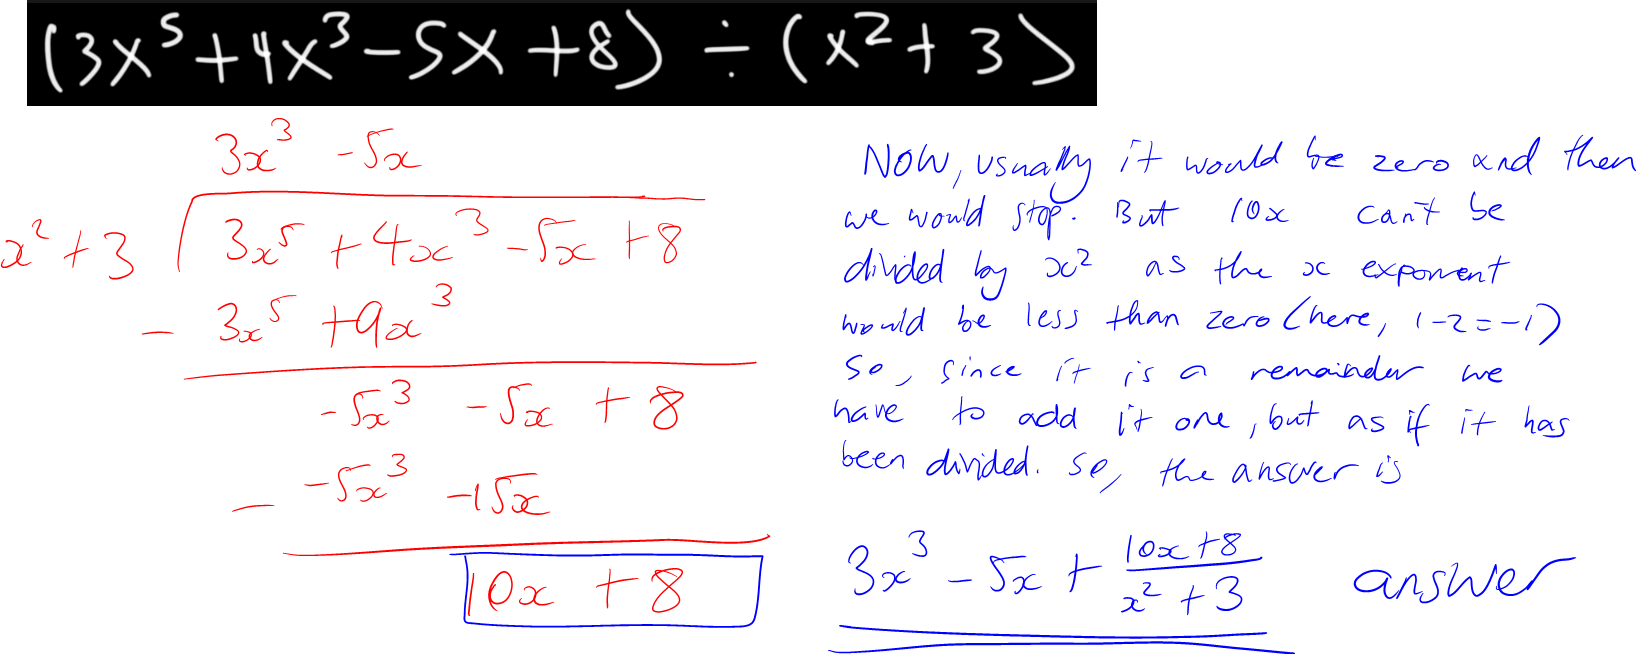 (3x⁵+4x³-5x+8) ÷ (x²+3)
3x³ -5x
x²+3 3x⁵ +4x³ -5x +8
- 3x⁵ +9x³
-5x³ -5x +8
- -5x³ -15x
10x +8
NOW, usually it would be zero and then
we would stop. But 10x can't be
divided by x² as the x exponent
would be less than zero (here, 1-2=-1)
So, since it is a remainder we
have to add it one, but as if it has
been divided. so, the answer is
3x³ - 5x + (10x+8)/(x²+3) answer